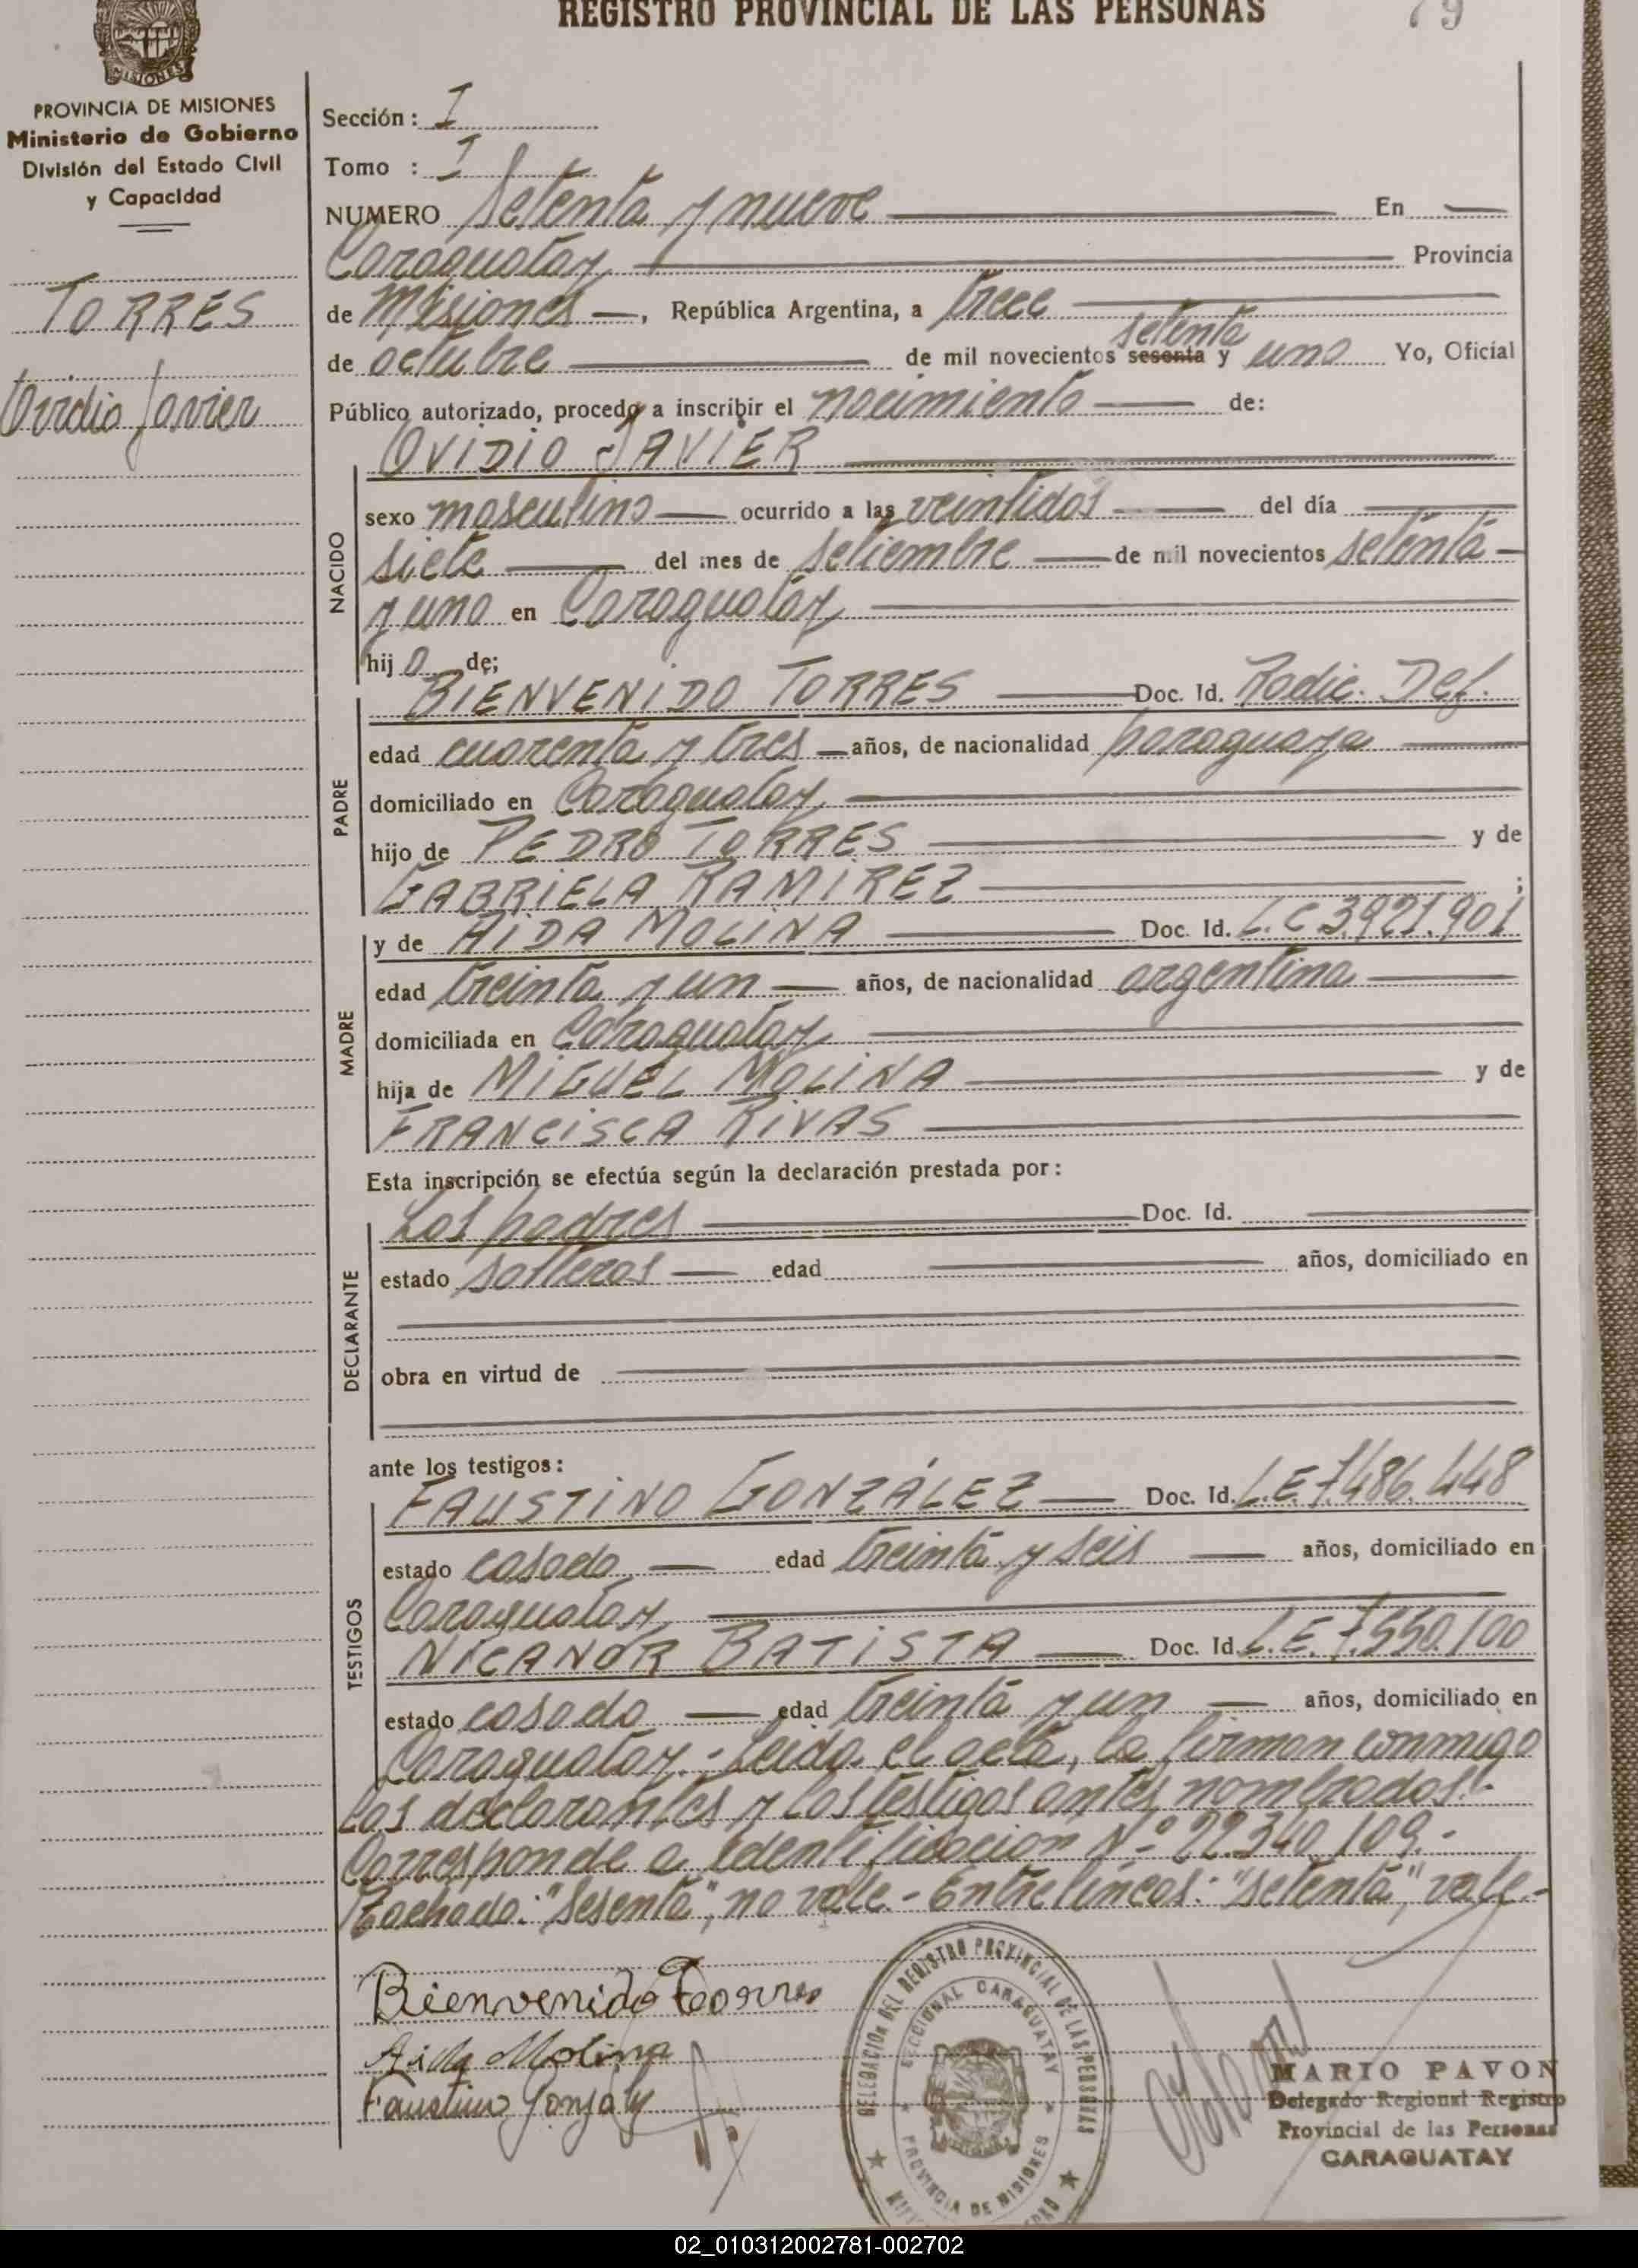 REGISTRO PROVINCIAL DE LAS PERSONAS 79
MISIONES
PROVINCIA DE MISIONES
Ministerio de Gobierno
División del Estado Civil
y Capacidad
TORRES
Ovidio Javier
Sección: I
Tomo : I
NUMERO Setenta y nueve En
Caraguatay Provincia
de Misiones, República Argentina, a trece
setenta
de octubre de mil novecientos sesenta y uno Yo, Oficial
Público autorizado, procedo a inscribir el nacimiento de:
OVIDIO JAVIER
NACIDO
sexo masculino ocurrido a las veintidos del día
siete del mes de setiembre de mil novecientos setenta
y uno en Caraguatay
hijo de;
PADRE
BIENVENIDO TORRES Doc. Id. Radic. Def.
edad cuarenta y tres años, de nacionalidad paraguaya
domiciliado en Caraguatay
hijo de PEDRO TORRES y de
GABRIELA RAMIREZ ;
MADRE
y de AIDA MOLINA Doc. Id. L.C 3.921.901
edad treinta y un años, de nacionalidad argentina
domiciliada en Caraguatay
hija de MIGUEL MOLINA y de
FRANCISCA RIVAS
Esta inscripción se efectúa según la declaración prestada por:
DECLARANTE
Los padres Doc. Id.
estado solteros edad años, domiciliado en
obra en virtud de
ante los testigos:
TESTIGOS
FAUSTINO GONZÁLEZ Doc. Id. L.E. 7.486.448
estado casado edad treinta y seis años, domiciliado en
Caraguatay
NICANOR BATISTA Doc. Id. L.E. 7.550.100
estado casado edad treinta y un años, domiciliado en
Caraguatay.- Leida el acta, la firman conmigo
los declarantes y los testigos antes nombrados.-
Corresponde a Identificacion Nº 22.340.109.-
Tachado: "sesenta", no vale.- Entrelíneas: "setenta", vale.-
Bienvenido Torres
Aida Molina
Faustino Gonzalez
DELEGACION DEL REGISTRO PROVINCIAL DE LAS PERSONAS
SECCIONAL CARAGUATAY
PROVINCIA DE MISIONES
MARIO PAVON
Delegado Regional Registro
Provincial de las Personas
CARAGUATAY
02_010312002781-002702